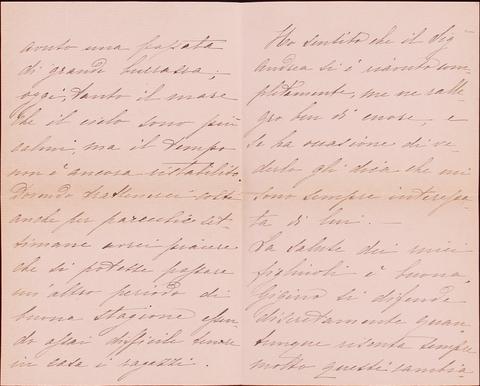 avuto una passata
di grande burrasca;
oggi, tanto il mare
che il cielo sono più
calmi, ma il tempo
non è ancora ristabilito.
Dovendo trattenerci
anche per parecchie set-
timane avrei piacere
che si potesse passare
un'altro periodo di
buona stagione essen-
do assai difficile tenere
in casa i ragazzi.
Ho sentito che il Sigʳ
Andrea si è riavuto com-
pletamente, me ne ralle-
gro ben di cuore, e
se ha occasione di ve-
derlo gli dica che mi
sono sempre interessa-
ta di lui. —
La salute dei miei
figliuoli è buona,
Gigino si difende
discretamente quan-
tunque risenta sempre
molto questi cambia-